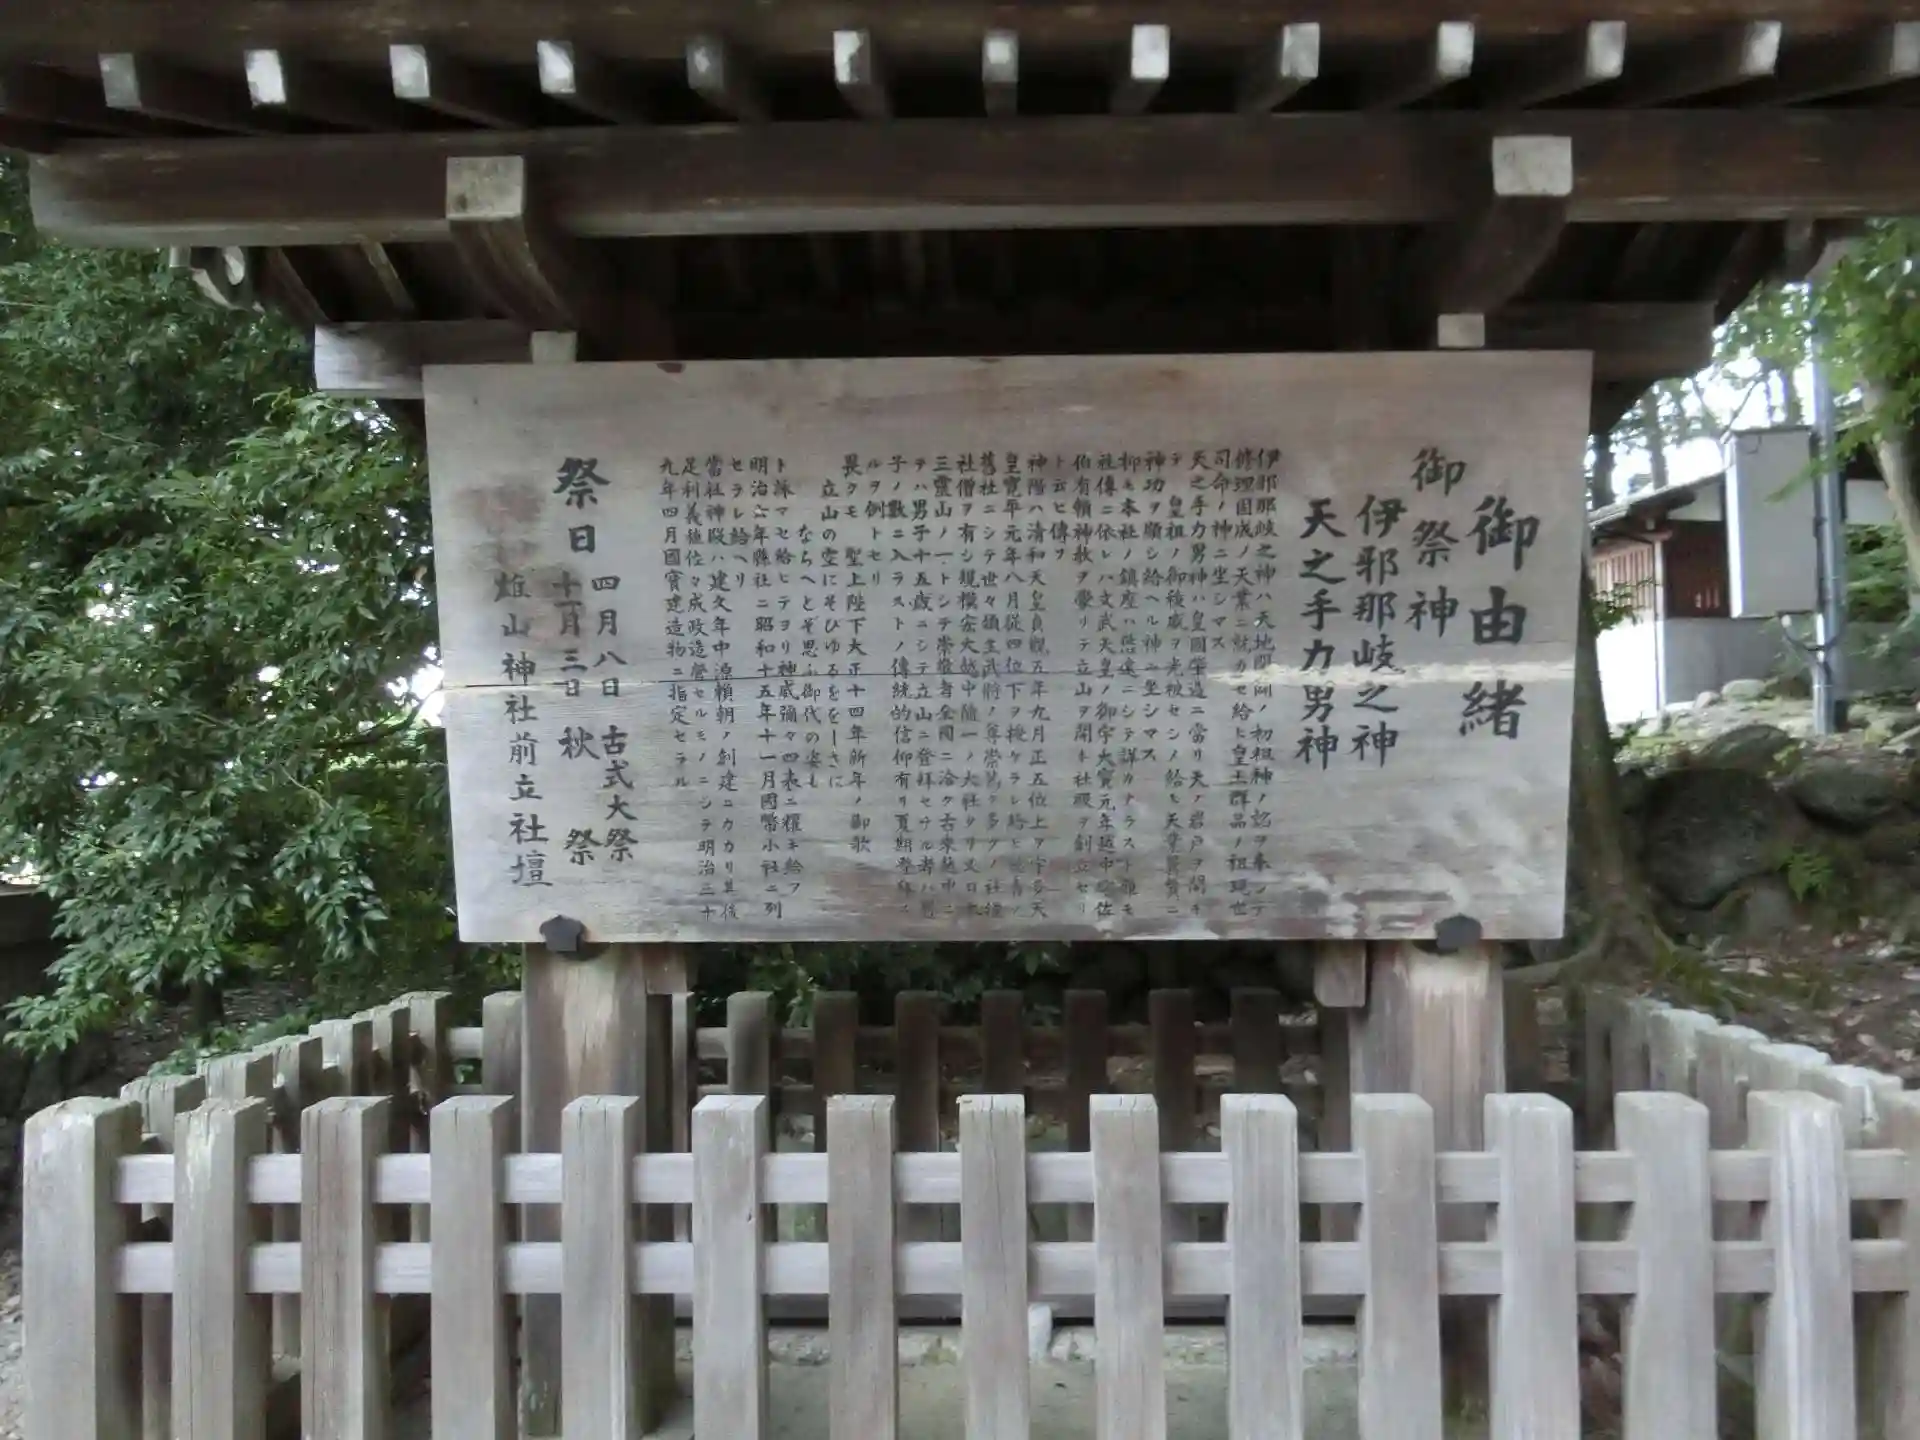 御由緒
御祭神
伊邪那岐之神
天之手力男神
伊邪那岐之神ハ天地開闢ノ初祖神ノ詔ヲ奉シテ
修理固成ノ天業ニ就カセ給ヒ皇土群品ノ祖現世
司命ノ神ニ坐シマス
天之手力男神ハ皇國肇造ニ當リ天ノ岩戸ヲ開キ
テ 皇祖ノ御稜威ヲ光被セシメ給ヒ天業翼賛ニ
神功ヲ顯シ給ヘル神ニ坐シマス
抑モ本社ノ鎮座ハ悠遠ニシテ詳カナラスト雖モ
社傳ニ依レハ文武天皇ノ御宇大寶元年越中國佐
伯有頼神教ヲ蒙リテ立山ヲ開キ社殿ヲ創立セリ
ト云ヒ傳フ
神階ハ清和天皇貞観五年九月正五位上ヲ宇多天
皇寛平元年八月従四位下ヲ授ケラレ給ヒ
舊社ニシテ世々領主武将ノ尊崇篤ク多クノ社領
社僧ヲ有シ規模宏大越中随一ノ大社タリ又日本
三霊山ノ一トシテ崇敬者全國ニ洽ク古来越中ニ
テハ男子十五歳ニシテ立山ニ登拝セサル者ハ男
子ノ數ニ入ラストノ傳統的信仰有リ夏期登拝ス
ルヲ例トセリ
畏クモ 聖上陛下大正十四年新年ノ御歌ニ
立山の空にそびゆるををしさに
ならへとぞ思ふ御代の姿も
ト詠マセ給ヒテヨリ神威彌々四表ニ耀キ給フ
明治六年縣社ニ昭和十五年十一月國幣小社ニ列
セラレ給ヘリ
當社神殿ハ建久年中源頼朝ノ創建ニカカリ其後
足利義稙位々成政造營セルモノニシテ明治三十
九年四月國寳建造物ニ指定セラル
祭日 四月八日 古式大祭
十一月三日 秋祭
雄山神社前立社壇